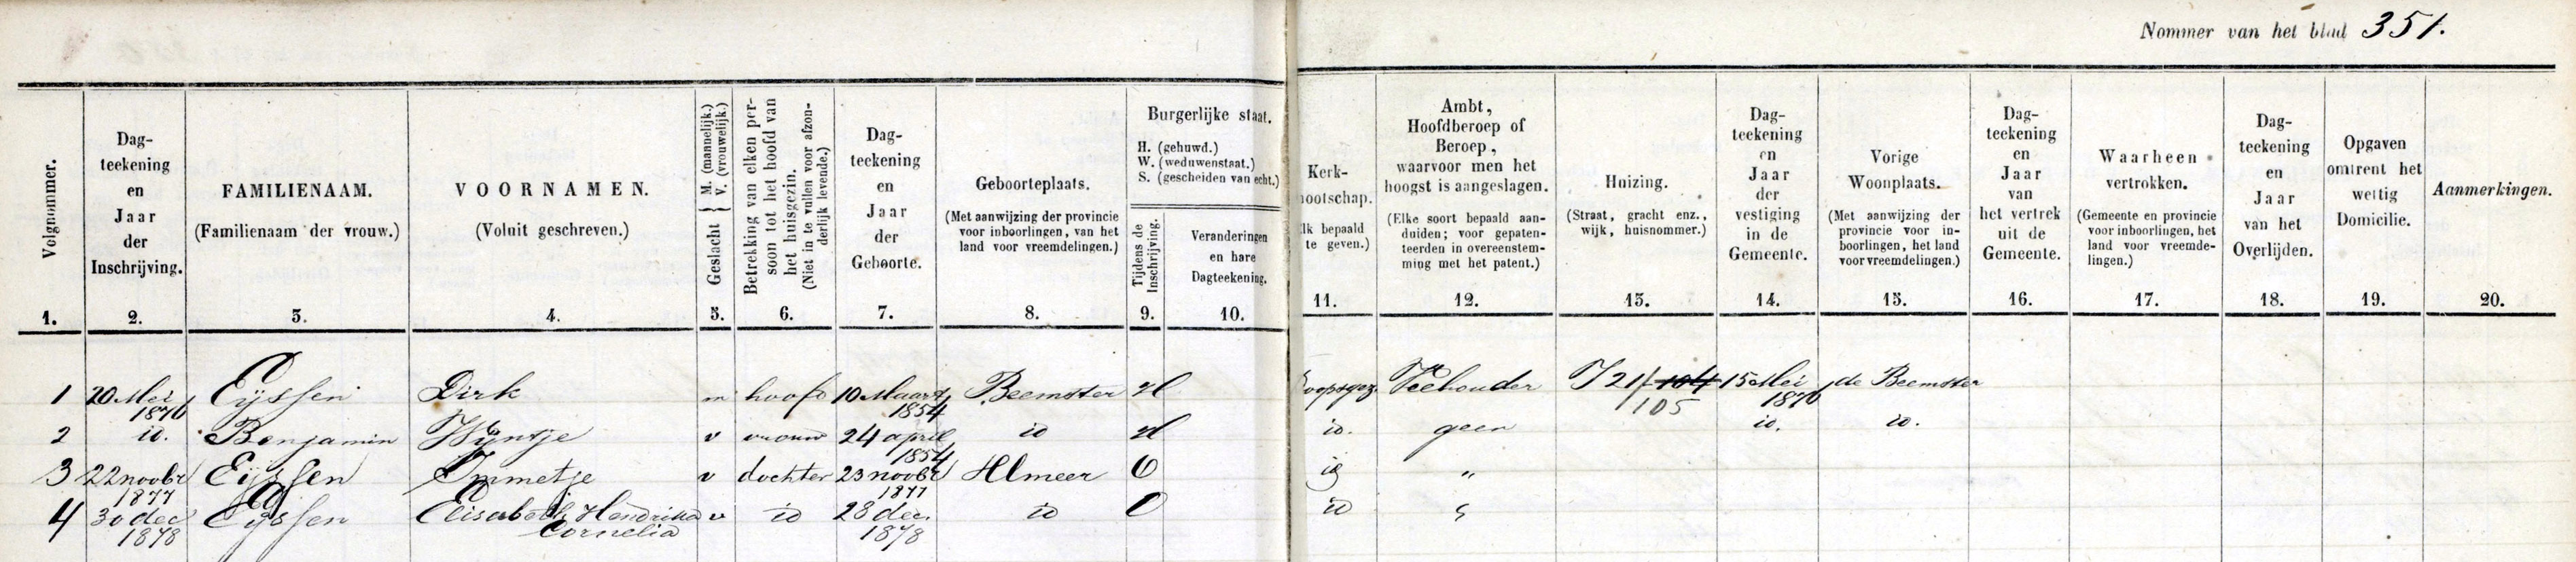 Nommer van het blad 351.
Volgnommer.
1.
Dag-
teekening
en
Jaar
der
Inschrijving.
2.
FAMILIENAAM.
(Familienaam der vrouw.)
3.
VOORNAMEN.
(Voluit geschreven.)
4.
Geslacht { M. (mannelijk.) V. (vrouwelijk.)
5.
Betrekking van elken per-
soon tot het hoofd van
het huisgezin.
(Niet in te vullen voor afzon-
derlijk levende.)
6.
Dag-
teekening
en
Jaar
der
Geboorte.
7.
Geboorteplaats.
(Met aanwijzing der provincie
voor inboorlingen, van het
land voor vreemdelingen.)
8.
Burgerlijke staat.
H. (gehuwd.)
W. (weduwenstaat.)
S. (gescheiden van echt.)
Tijdens de
Inschrijving.
9.
Veranderingen
en hare
Dagteekening.
10.
Kerk-
nootschap.
lk bepaald
te geven.)
11.
Ambt,
Hoofdberoep of
Beroep,
waarvoor men het
hoogst is aangeslagen.
(Elke soort bepaald aan-
duiden; voor gepaten-
teerden in overeenstem-
ming met het patent.)
12.
Huizing.
(Straat, gracht enz.,
wijk, huisnommer.)
13.
Dag-
teekening
en
Jaar
der
vestiging
in de
Gemeente.
14.
Vorige
Woonplaats.
(Met aanwijzing der
provincie voor in-
boorlingen, het land
voor vreemdelingen.)
15.
Dag-
teekening
en
Jaar
van
het vertrek
uit de
Gemeente.
16.
Waarheen
vertrokken.
(Gemeente en provincie
voor inboorlingen, het
land voor vreemde-
lingen.)
17.
Dag-
teekening
en
Jaar
van het
Overlijden.
18.
Opgaven
omtrent het
wettig
Domicilie.
19.
Aanmerkingen.
20.
1 20 Mei 1876 Eyssen Dirk m hoofd 10 Maart 1854 Beemster H oopsgez. Veehouder 21/104 105 15 Mei 1876 de Beemster
2 id. Benjamin Wijntje v vrouw 24 april 1854 id H id. geen id. id.
3 22 novbr 1877 Eijssen Immetje v dochter 23 novbr 1877 Hlmeer O id "
4 30 dec 1878 Eijssen Elisabeth Hendrika Cornelia v id 28 dec. 1878 id O id